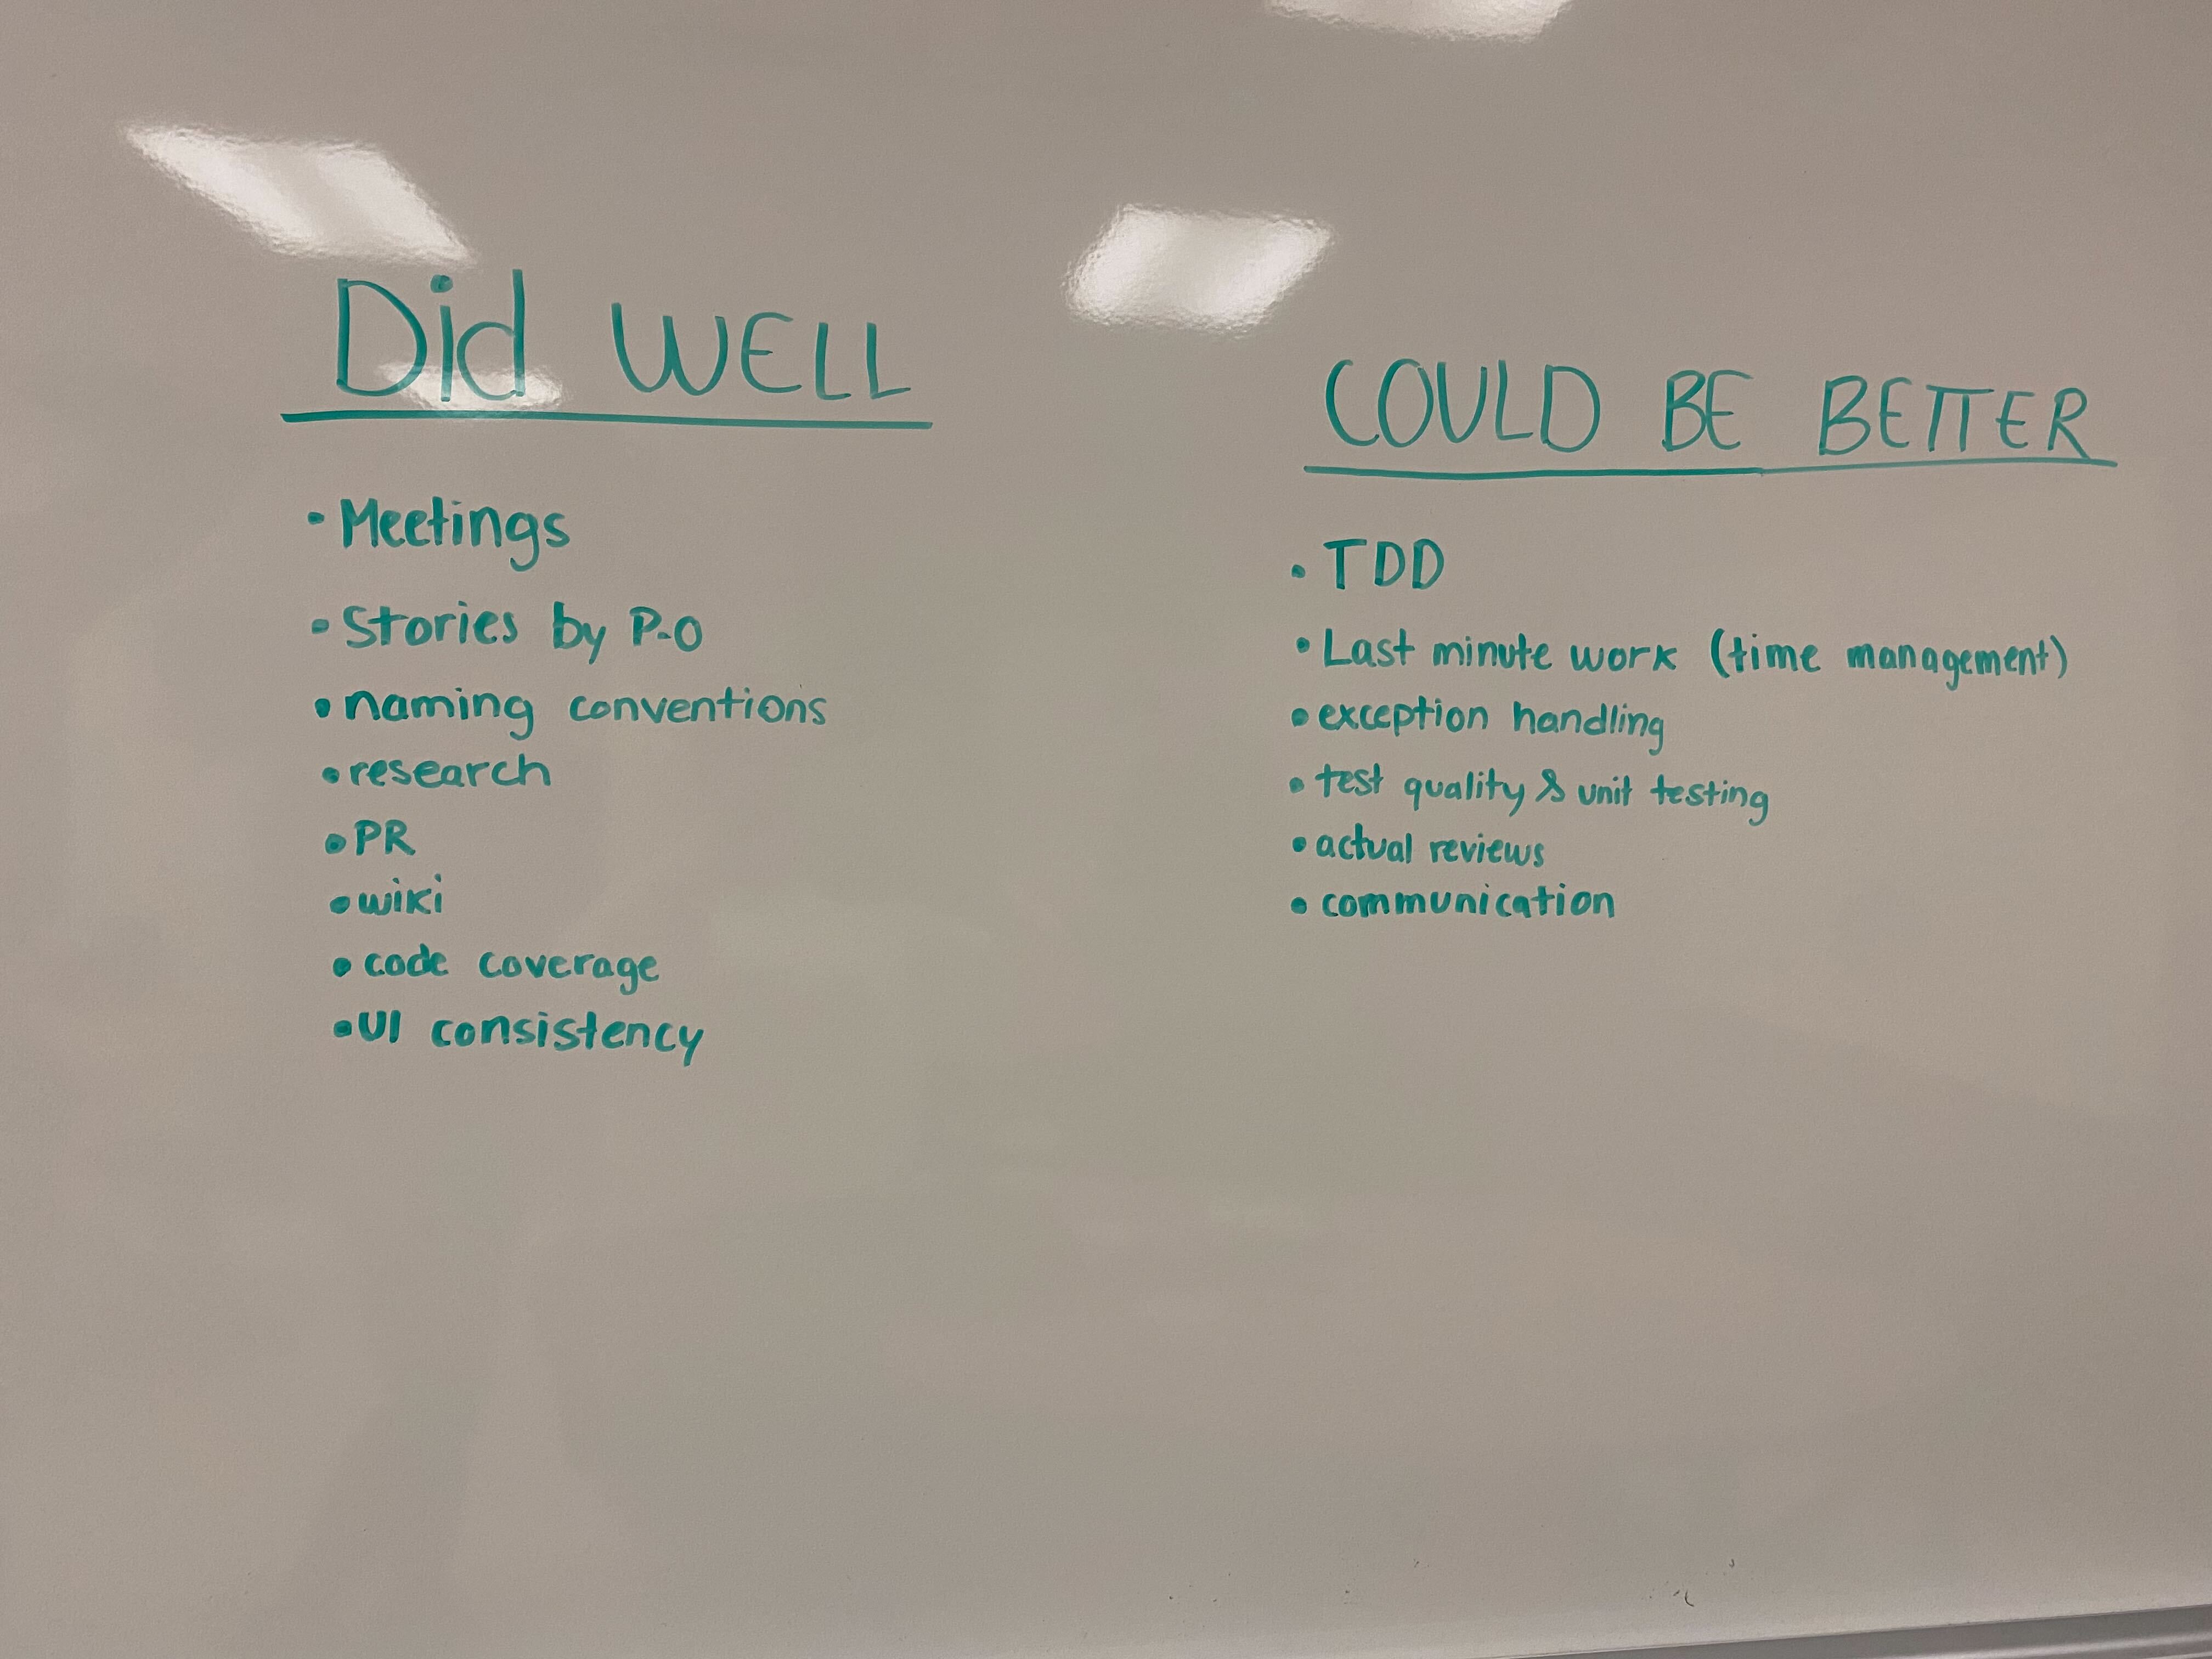 Did WELL
• Meetings
• Stories by P-O
• naming conventions
• research
• PR
• wiki
• code coverage
• UI consistency
COULD BE BETTER
• TDD
• Last minute work (time management)
• exception handling
• test quality & unit testing
• actual reviews
• communication